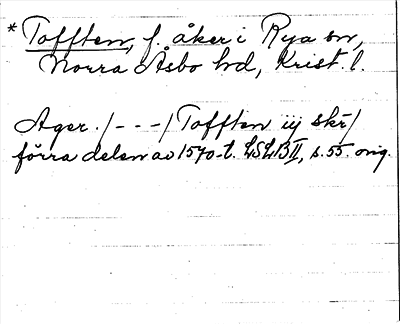 * Tofften, f. åker i Rya sn,
Norra Åsbo hd, Krist. l.
Ager. /- - -/ Tofften iij skr/
förra delen av 1570-t. LSLB II, s. 55. orig.